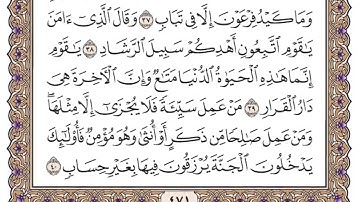 وَمَا كَيْدُ فِرْعَوْنَ إِلَّا فِى تَبَابٍ ٣٧ وَقَالَ ٱلَّذِىٓ ءَامَنَ
يَٰقَوْمِ ٱتَّبِعُونِ أَهْدِكُمْ سَبِيلَ ٱلرَّشَادِ ٣٨ يَٰقَوْمِ
إِنَّمَا هَٰذِهِ ٱلْحَيَوٰةُ ٱلدُّنْيَا مَتَٰعٌ وَإِنَّ ٱلْءَاخِرَةَ هِىَ
دَارُ ٱلْقَرَارِ ٣٩ مَنْ عَمِلَ سَيِّئَةً فَلَا يُجْزَىٰٓ إِلَّا مِثْلَهَا ۖ
وَمَنْ عَمِلَ صَٰلِحًا مِّن ذَكَرٍ أَوْ أُنثَىٰ وَهُوَ مُؤْمِنٌ فَأُو۟لَٰٓئِكَ
يَدْخُلُونَ ٱلْجَنَّةَ يُرْزَقُونَ فِيهَا بِغَيْرِ حِسَابٍ ٤٠
٤٧١